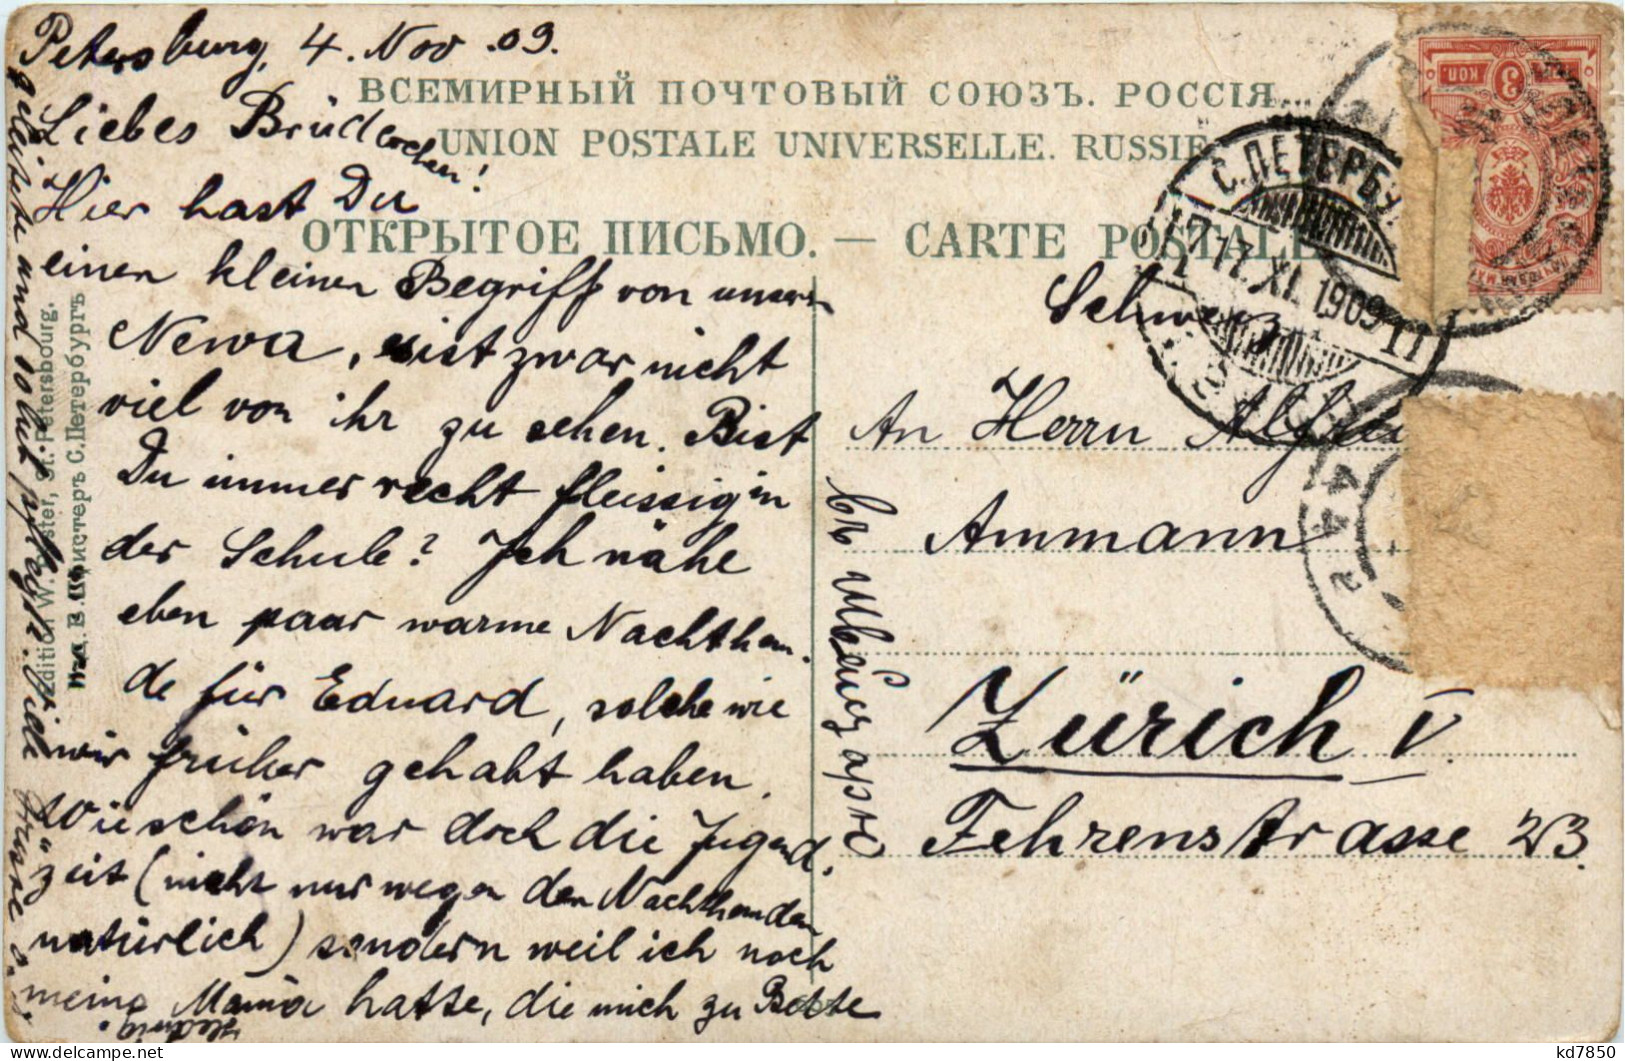 Petersburg, 4. Nov. 09.
ВСЕМИРНЫЙ ПОЧТОВЫЙ СОЮЗЪ. РОССІЯ
UNION POSTALE UNIVERSELLE. RUSSIE
ОТКРЫТОЕ ПИСЬМО. — CARTE POSTALE
Liebes Brüderchen!
Hier hast Du
einen kleinen Begriff von unserer
Newa, ist zwar nicht
viel von ihr zu sehen. Bist
Du immer recht fleissig in
der Schule? Ich nähe
eben paar warme Nachthem-
de für Eduard, solche wie
wir früher gehabt haben.
Wie schön war doch die Jugend-
zeit (nicht nur wegen den Nachthemden
natürlich) sondern weil ich noch
meine Mama hatte, die mich zu Bette
geleitete und so lieb pflegte. Viele Grüsse d.
Hedwig.
Edition W. ster, St. Petersbourg.
Изд. В. стеръ С. Петербургъ
Schweiz
An Herrn Alfred
Ammann
Zürich V.
Fehrenstrasse 23.
въ Швейцарію
С. ПЕТЕРБУ
17. XI. 1909
3
КОП.
kd7850